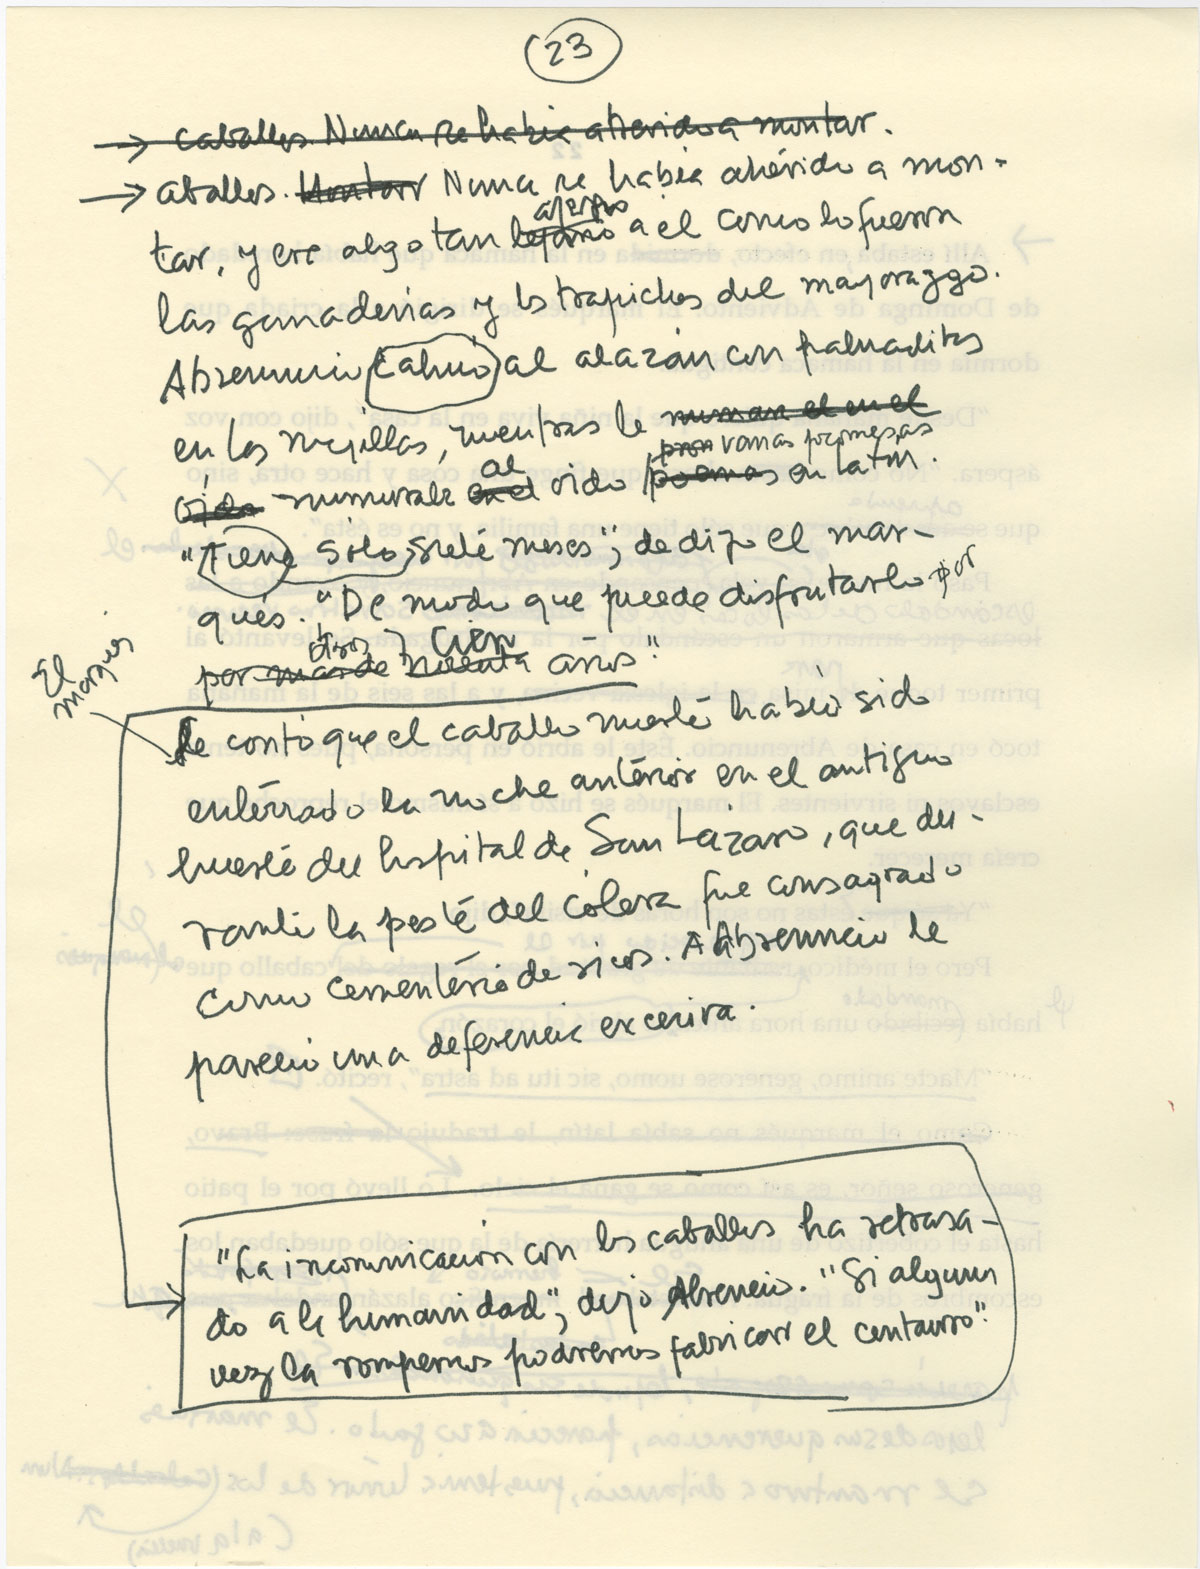 23
→ caballos. Nunca se había atrevido a montar.
→ aballos. Montar Nunca se había atrevido a mon-
ajeno
tar, y era algo tan lejano a él como lo fueron
las ganaderías y los trapiches del mayorazgo.
Abrenuncio calmó al alazán con palmaditas
en las mejillas, mientras le murmuraba en el
pron vanas promesas
oído murmuraba en el al oído poemas en latín.
"Tiene sólo siete meses", le dijo el mar-
qués. "De modo que puede disfrutarlo por
otros cien
por más de noventa años".
El
marqués
Le contó que el caballo muerto había sido
enterrado la noche anterior en el antiguo
huerto del hospital de San Lázaro, que du-
rante la peste del cólera fue consagrado
como cementerio de ricos. A Abrenuncio le
pareció una deferencia excesiva.
"La incomunicación con los caballos ha retrasa-
do a la humanidad", dijo Abrenuncio. "Si alguna
vez la rompemos podremos fabricar el centauro".